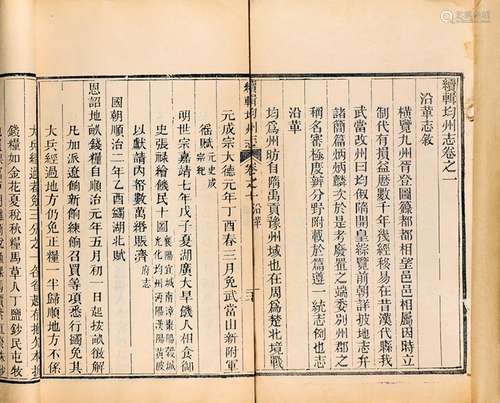 續輯均州志卷之一
沿革志敘
橫覽九州胥登圖籙都都相望邑邑相屬因時立
制代有損益厯數千年幾經移易在昔漢代縣我
武當改州曰均倣隋開皇綜覽前朝詳披地志弁
諸簡篇炳炳麟次於是考慶置之端委別州郡之
稱名審極度辨分野附載於篇遵一統志例也志
沿革
均爲州昉自隋禹貢豫州域也在周爲楚北境戰
續輯均州志
卷之一
沿革
元成宗大德元年丁酉春三月免武當山新附軍
徭賦
元史成宗紀
明世宗嘉靖七年戊子夏湖廣大旱饑人相食御
史張祿繪饑民十圖
以獻請內帑數萬緡賑濟
府志
國朝順治二年乙酉蠲湖北賦
恩詔地畝錢糧自順治元年五月初一日起按畝徵解
凡加派遼餉新餉練餉召買等項悉行蠲免其
大兵經過地方仍免正糧一半歸順地方不係
大兵經過者
錢糧如金花夏稅秋糧馬草人丁鹽鈔民屯牧